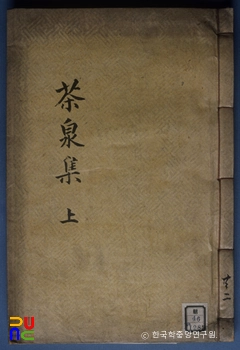 茶泉集 上
共二
© 한국학중앙연구원